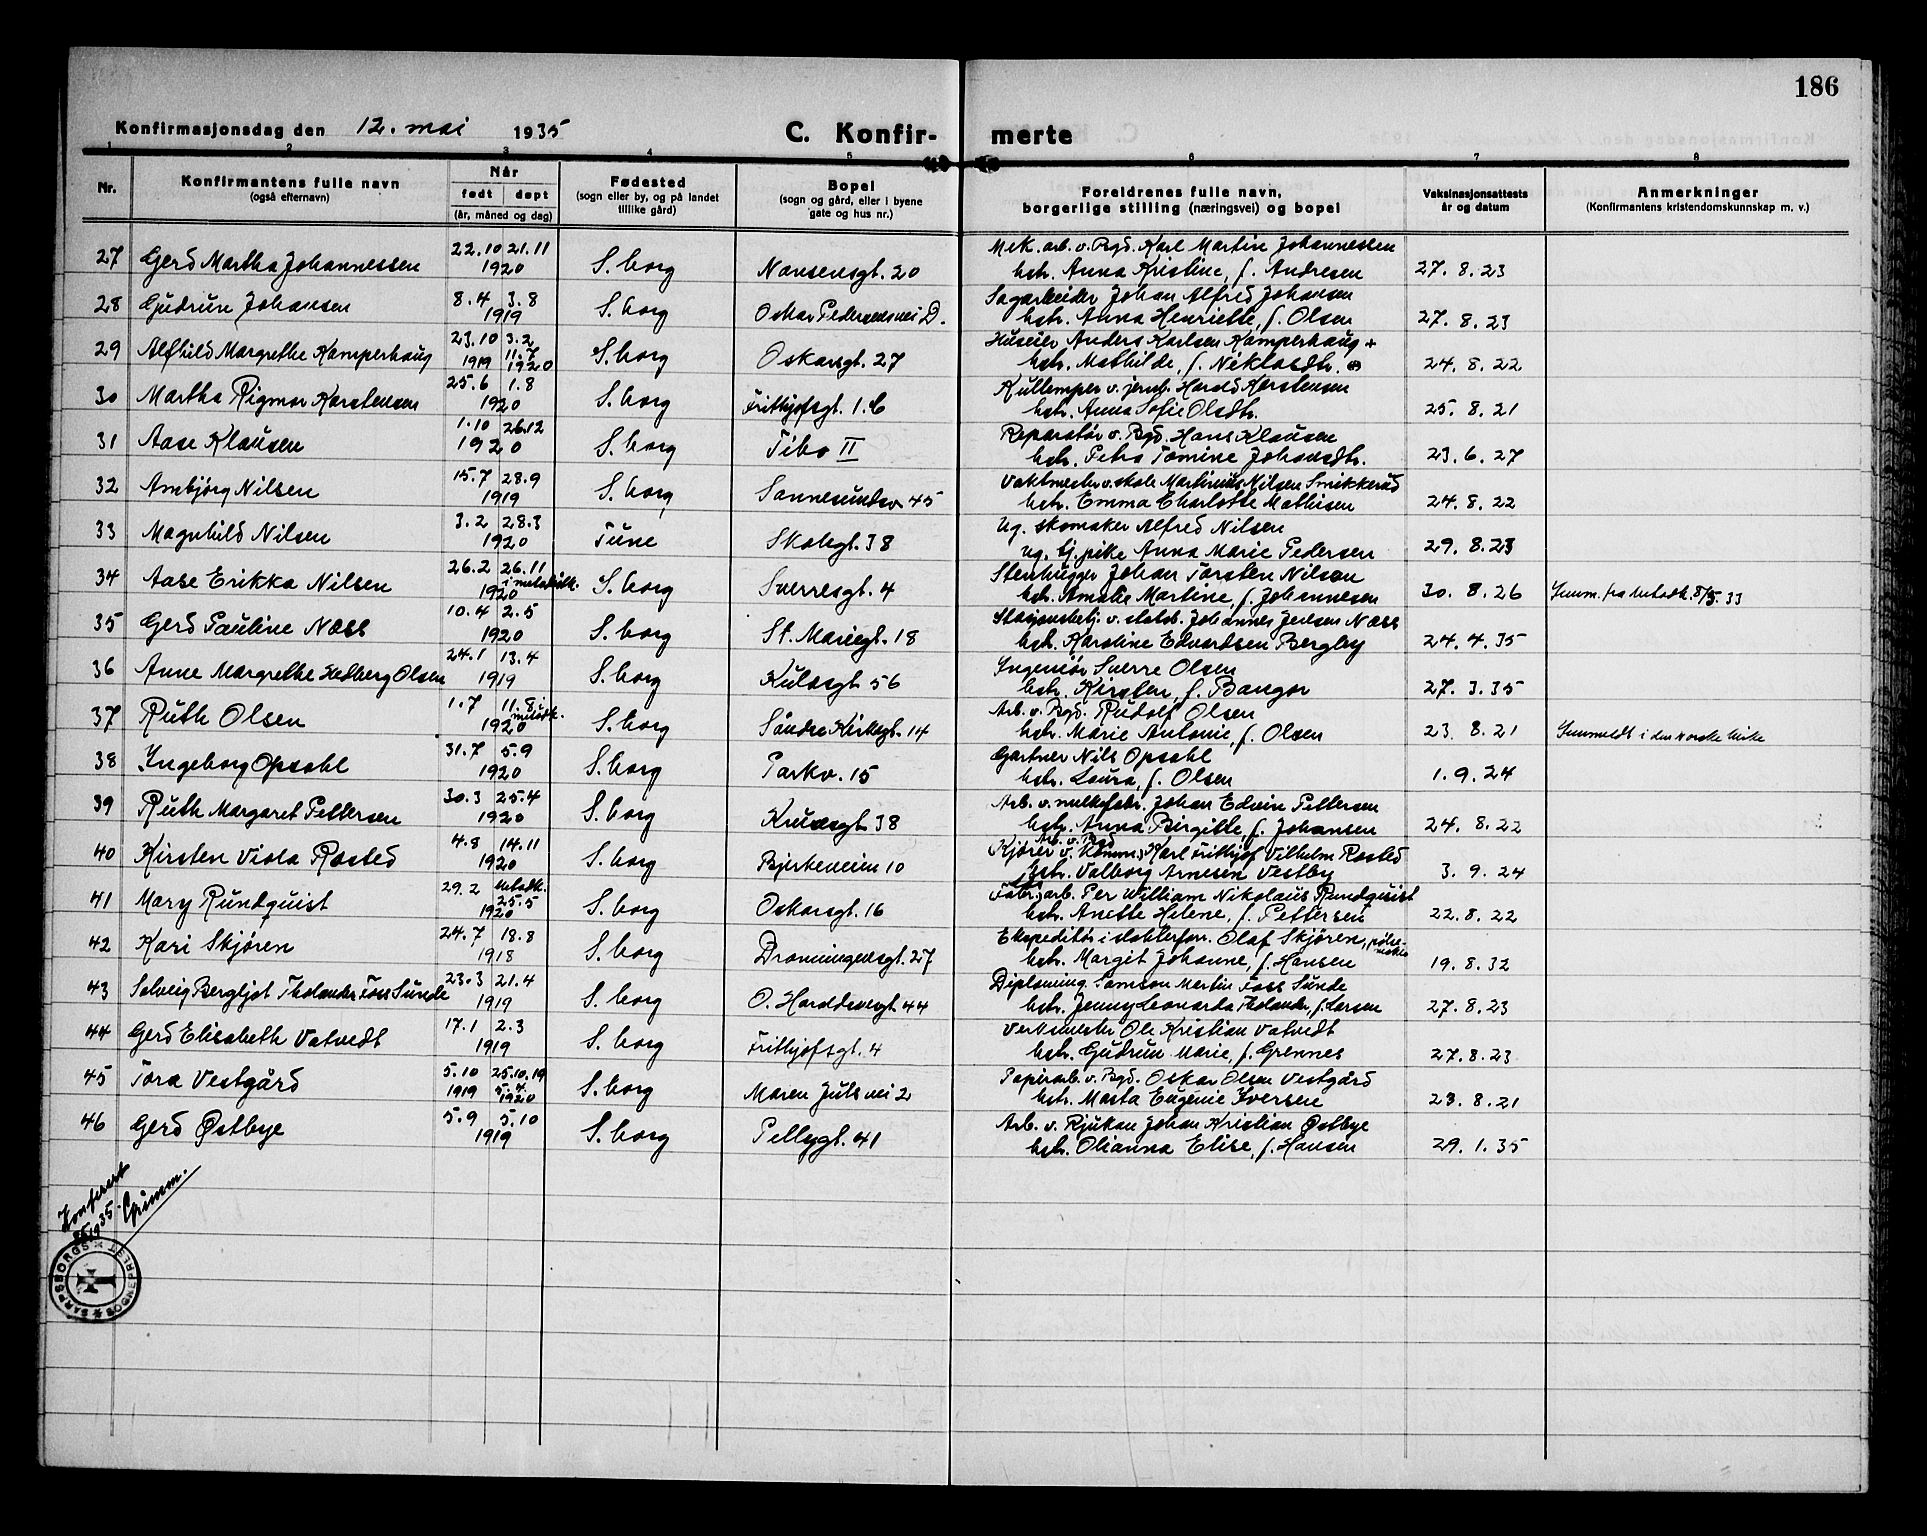 186
Konfirmasjonsdag den 12. mai 1935 C. Konfir- merte
1 2 3 4 5 6 7 8
Nr. Konfirmantens fulle navn (også efternavn) Når født døpt (år, måned og dag) Fødested (sogn eller by, og på landet tillike gård) Bopel (sogn og gård, eller i byene gate og hus nr.) Foreldrenes fulle navn, borgerlige stilling (næringsvei) og bopel Vaksinasjonsattests år og datum Anmerkninger (Konfirmantens kristendomskunnskap m. v.)
27 Gerd Martha Johannessen 22.10 21.11 1920 S.borg Nansensgt. 20 Mek. arb. v. Bgd. Karl Martin Johannessen
hstr. Anna Kristine, f. Andresen 27.8.23
28 Gudrun Johansen 8.4 3.8 1919 S.borg Oskar Pedersensvei D. Sagarbeider Johan Alfred Johansen
hstr. Anna Henriette, f. Olsen 27.8.23
29 Alfhild Margrethe Kamperhaug 23.10 1919 3.2 11.7 1920 S.borg Oskarsgt. 27 Huseier Anders Karlsen Kamperhaug +
hstr. Mathilde, f. Niklasdtr. 24.8.22
30 Martha Rigmor Karstensen 25.6 1.8 1920 S.borg Frithjofsgt. 1.C Kullemper v. jernb. Harald Karstensen
hstr. Anna Sofie Olsdtr. 25.8.21
31 Aase Klausen 1.10 26.12 1920 S.borg Tibo II Reparatør v. Bgd. Hans Klausen
hstr. Petra Tomine Johansdtr. 23.6.27
32 Ambjörg Nilsen 15.7 28.9 1919 S.borg Sannesundsv. 45 Vaktmester v. skole Martinius Nilsen Smikkerud
hstr. Emma Charlotte Mathisen 24.8.22
33 Magnhild Nilsen 3.2 28.3 1920 Tune Skolegt. 38 Ug. skomaker Alfred Nilsen
ug. tj. pike Anna Marie Pedersen 29.8.23
34 Aase Erikka Nilsen 26.2 26.11 i metodistk. 1920 S.borg Sverresgt. 4 Stenhugger Johan Torsten Nilsen
hstr. Amalie Martine, f. Johannesen 30.8.26 Innm. fra metodk. 8/5.33
35 Gerd Pauline Næss 10.4 2.5 1920 S.borg St. Mariegt. 18 Stasjonsbetj. v. statsb. Johannes Jensen Næss
hstr. Karoline Edvardsen Bergby 24.4.35
36 Anne Margrethe Hedberg Olsen 24.1 13.4 1919 S.borg Kulåsgt 56 Ingeniør Sverre Olsen
hstr. Kirsten, f. Bangor 27.3.35
37 Ruth Olsen 1.7 11.8 i metodk. 1920 S.borg Söndre Kirkegt. 14 Arb. v. Bgd. Rudolf Olsen
hstr. Marie Antonie, f. Olsen 23.8.21 Innmeldt i den norske kirke
38 Ingeborg Opsahl 31.7 5.9 1920 S.borg Parkv. 15 Gartner Nils Opsahl
hstr. Laura, f. Olsen 1.9.24
39 Ruth Margaret Pettersen 30.3 25.4 1920 S.borg Krusesgt. 38 Arb. v. melkefabr. Johan Edvin Pettersen
hstr. Anna Birgitte, f. Johansen 24.8.22
40 Kirsten Viola Rosted 4.8 14.11 1920 S.borg Bjerkeveien 10 Arb. v. Bgd
Kjører v. Komm., Karl Frithjof Vilhelm Rosted
hstr. Valborg Arnesen Vestby 3.9.24
41 Mary Rundquist 29.2 Metodk. 25.5 1920 S.borg Oskarsgt. 16 Fabr. arb. Per William Nikolaus Rundquist
hstr. Anette Helene, f. Pettersen 22.8.22
42 Kari Skjören 24.7 18.8 1918 S.borg Dronningensgt. 27 Ekspeditör i slakterforr. Olaf Skjören, pölsemaker
hstr. Margit Johanne, f. Hansen 19.8.32
43 Solveig Bergljot Tholander Foss Sunde 23.3 21.4 1919 S.borg O. Haraldsensgt. 44 Diploming. Samson Martin Foss Sunde
hstr. Jenny Leonarda Tholander, f. Larsen 27.8.23
44 Gerd Elisabeth Vatvedt 17.1 2.3 1919 S.borg Frithjofsgt. 4 Verksmester Ole Kristian Vatvedt
hstr. Gudrun Marie, f. Grennes 27.8.23
45 Tora Vestgård 5.10 1919 25.10.19 5.4 1920 S.borg Maren Juls vei 2 Papirarb. v. Bgd. Oskar Olsen Vestgård
hstr. Marta Eugenie Iversen 23.8.21
46 Gerd Østbye 5.9 5.10 1919 S.borg Pellygt. 41 Arb. v. Rjukan Johan Kristian Østbye
hstr. Olianna Elise, f. Hansen 29.1.35
Konferert
1935. Grimm.
SARPSBORGS SOGNEPREST